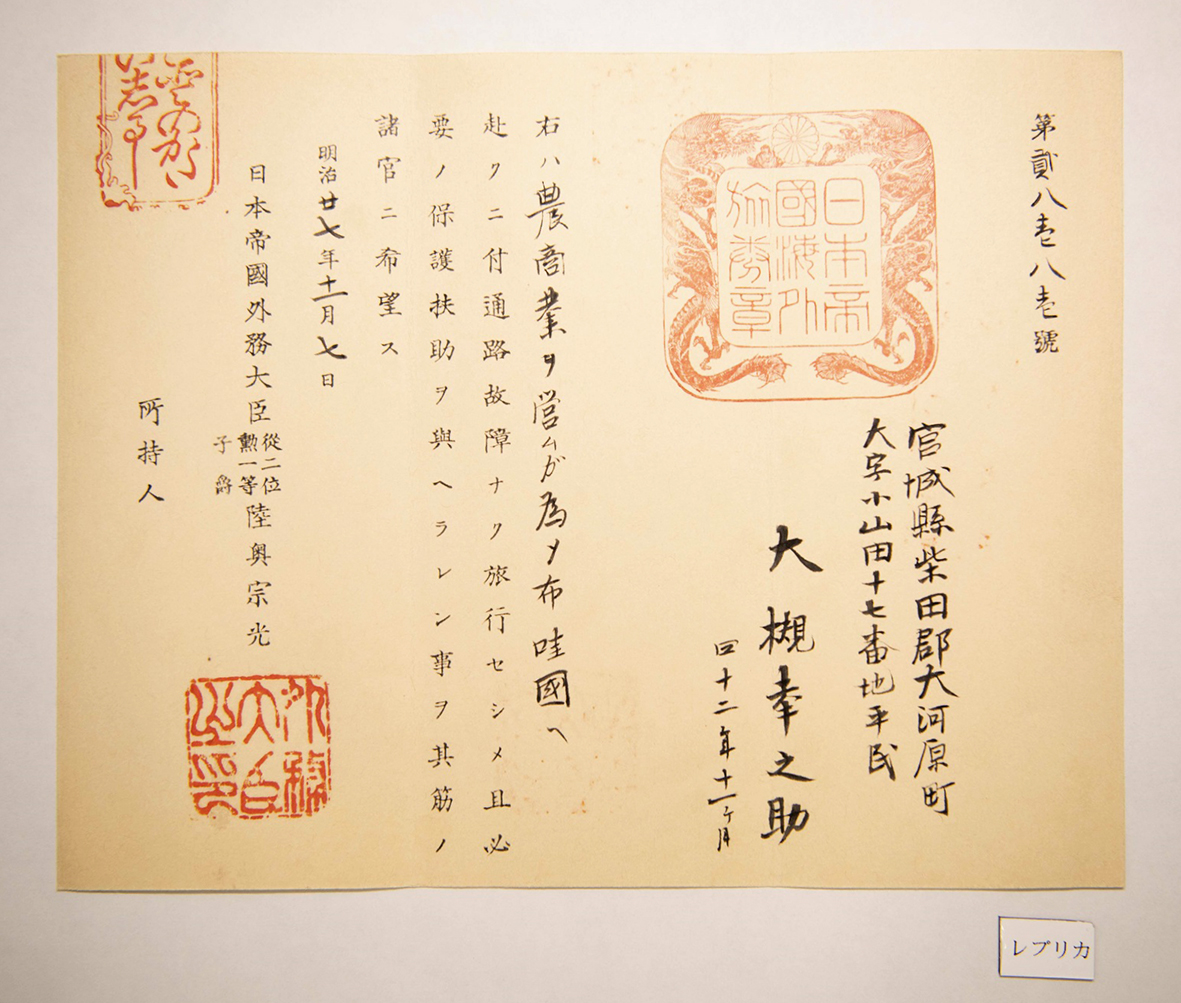 第貳八壱八壱號
日本帝
國海外
旅券章
宮城縣柴田郡大河原町
大字小山田十七番地平民
大槻幸之助
四十二年十一ヶ月
右ハ農商業ヲ営ムガ為メ布哇國ヘ
赴クニ付通路故障ナク旅行セシメ且必
要ノ保護扶助ヲ與ヘラレン事ヲ其筋ノ
諸官ニ希望ス
明治廿七年十一月七日
日本帝國外務大臣從二位勲一等子爵陸奥宗光
外務
大臣
之印
所持人
レプリカ